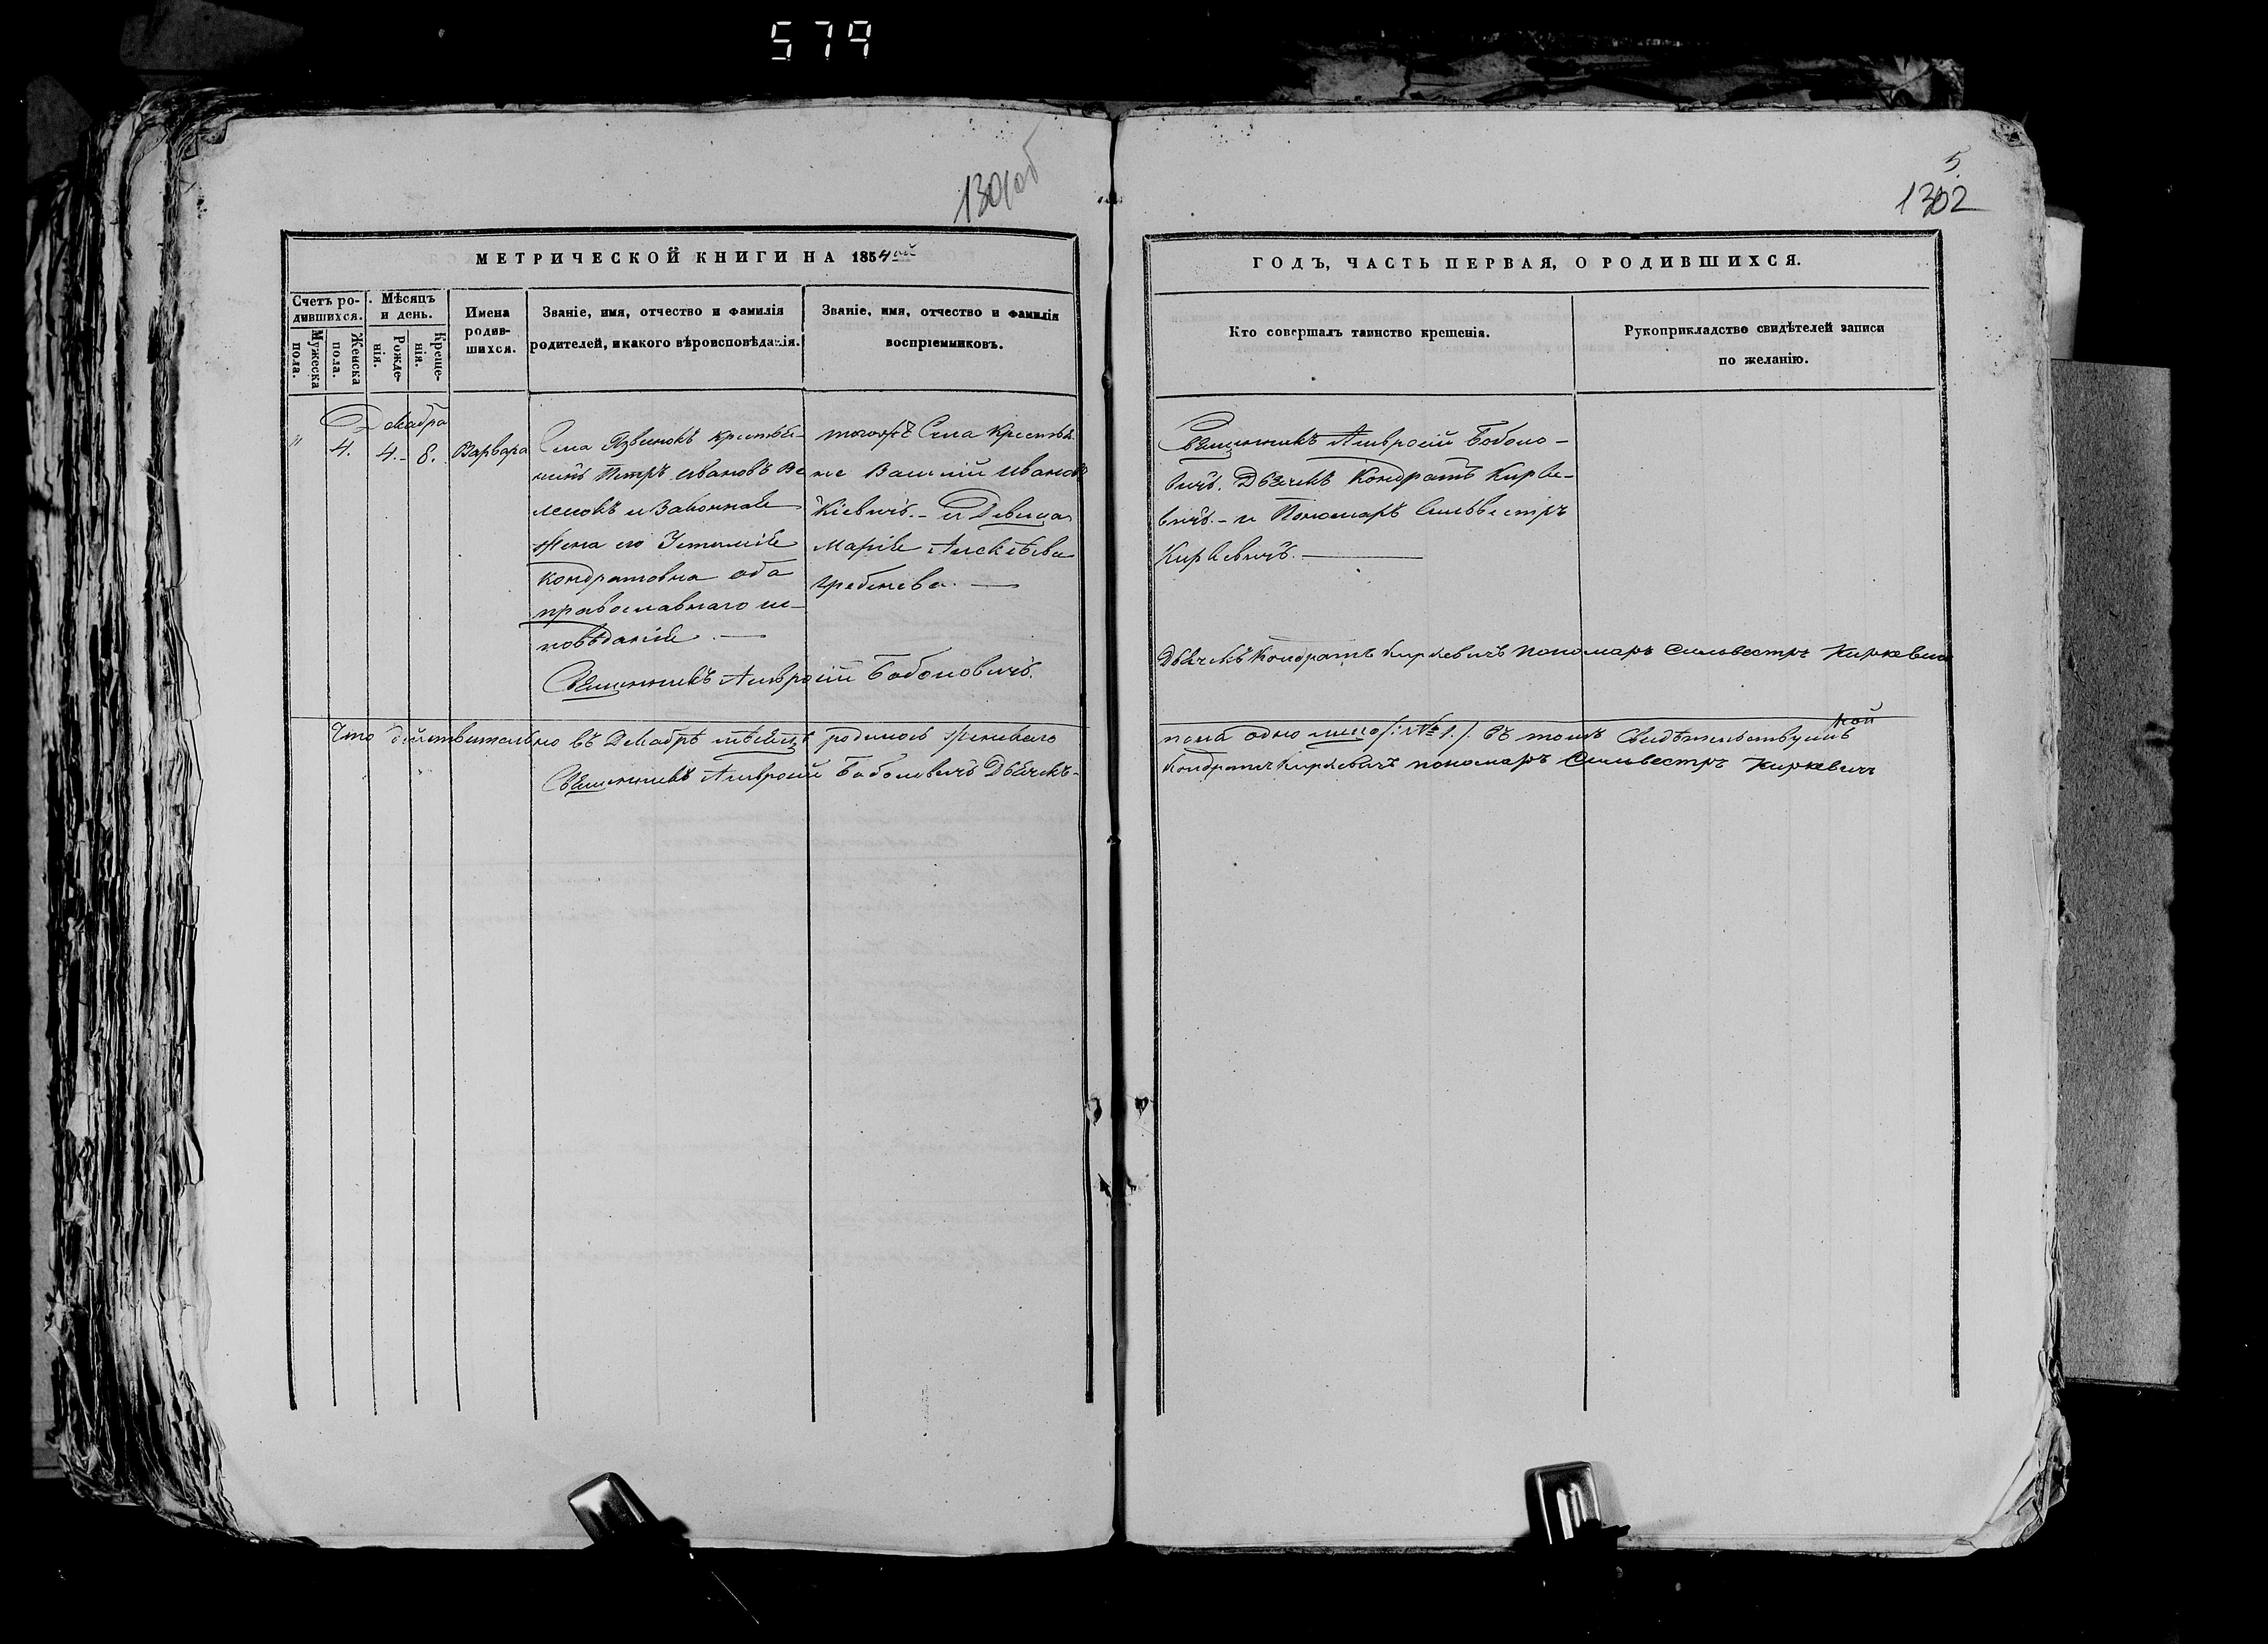 579
1301об
5.
1302
МЕТРИЧЕСКОЙ КНИГИ НА 1854ой
ГОДЪ, ЧАСТЬ ПЕРВАЯ, О РОДИВШИХСЯ.
Счетъ родившихся.
Мужеска пола.
Женска пола.
Мѣсяцъ и день.
Рожденія.
Крещенія.
Имена родившихся.
Званіе, имя, отчество и фамилія
родителей, и какого вѣроисповѣданія.
Званіе, имя, отчество и фамилія
воспріемниковъ.
Кто совершалъ таинство крещенія.
Рукоприкладство свидѣтелей записи
по желанію.
Декабря
" 4. 4. 8. Варвара
Села Язвинокъ крестья-
нинъ Петръ Ивановъ
и Законная
жена его
Кондратовна оба
православнаго ис-
повѣданія. —
Священникъ Амвросій Бобоновичъ.
тогожъ Села Крестья-
не Василій Ивановъ
Кіевичъ. - и Девица
Марія Алексѣева
Гребенева. —
Священникъ Амвросій Бобоно-
вичъ. Дьячекъ Кондратъ Кирке-
вичъ. - и Пономарь Сильвестръ
Киркевичъ. —
Дьячекъ Кондратъ Киркевичъ пономарь Сильвестръ Киркевич
Что действительно въ Декабрѣ мѣсяцѣ родилось женскаго
пола одно лице /: № 1. /. въ томъ Свидѣтельствуемъ
Священникъ Амвросій Бобоновичъ Дьячекъ-
Кондратъ Киркевичъ пономарь Сильвестръ Киркевич